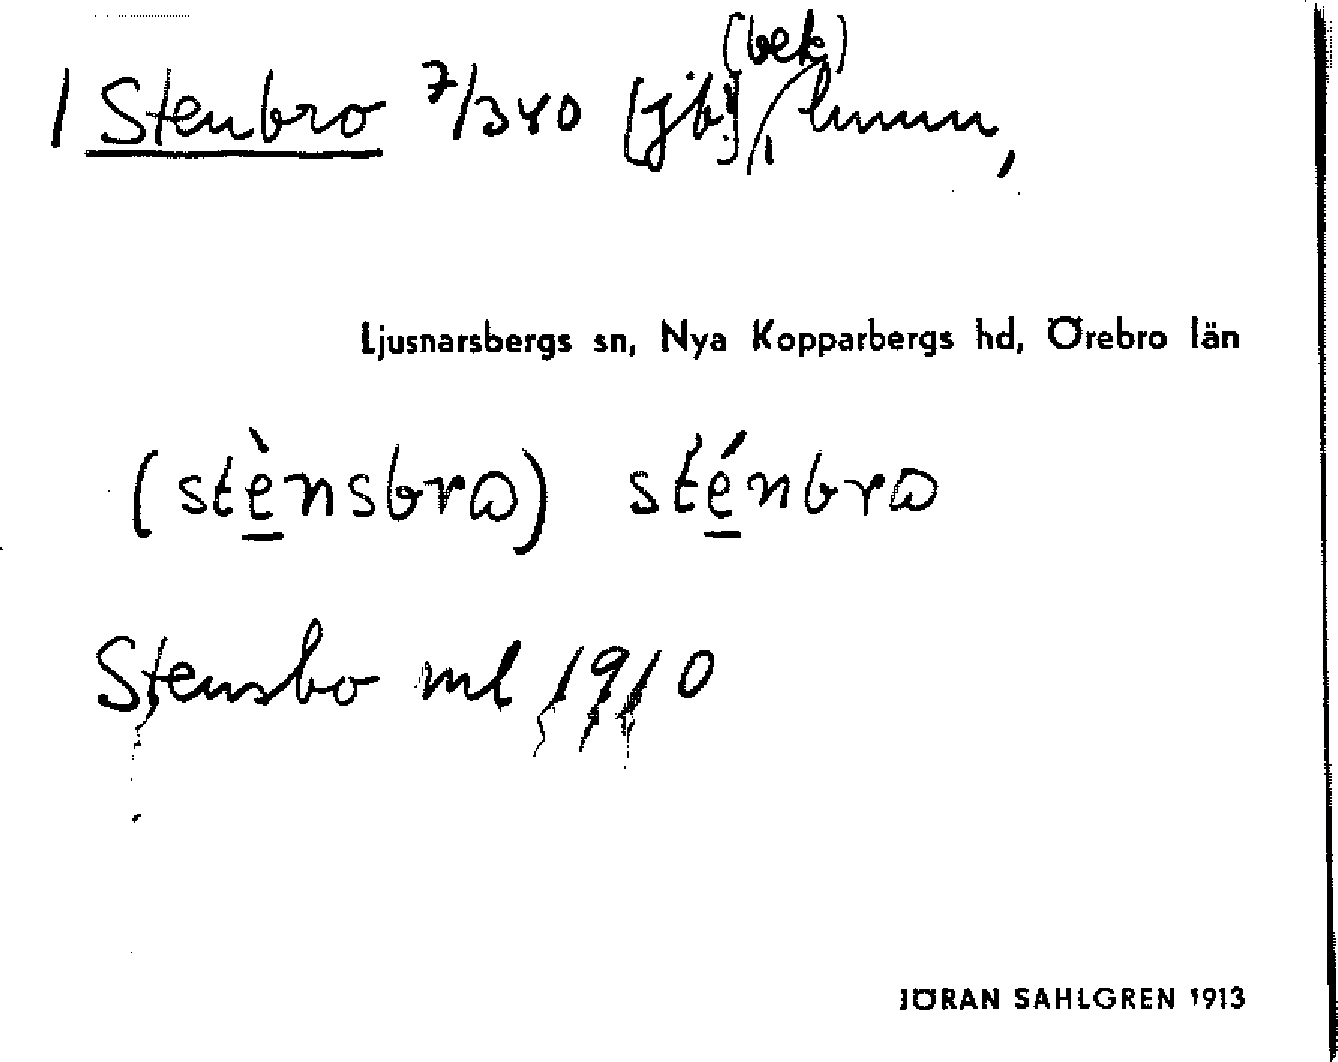 (bek)
1 Stenbro 7/340 [jb], hmn,
Ljusnarsbergs sn, Nya Kopparbergs hd, Örebro län
(stènsbrɷ) sténbrɷ
Stensbo ml 1910
JÖRAN SAHLGREN 1913